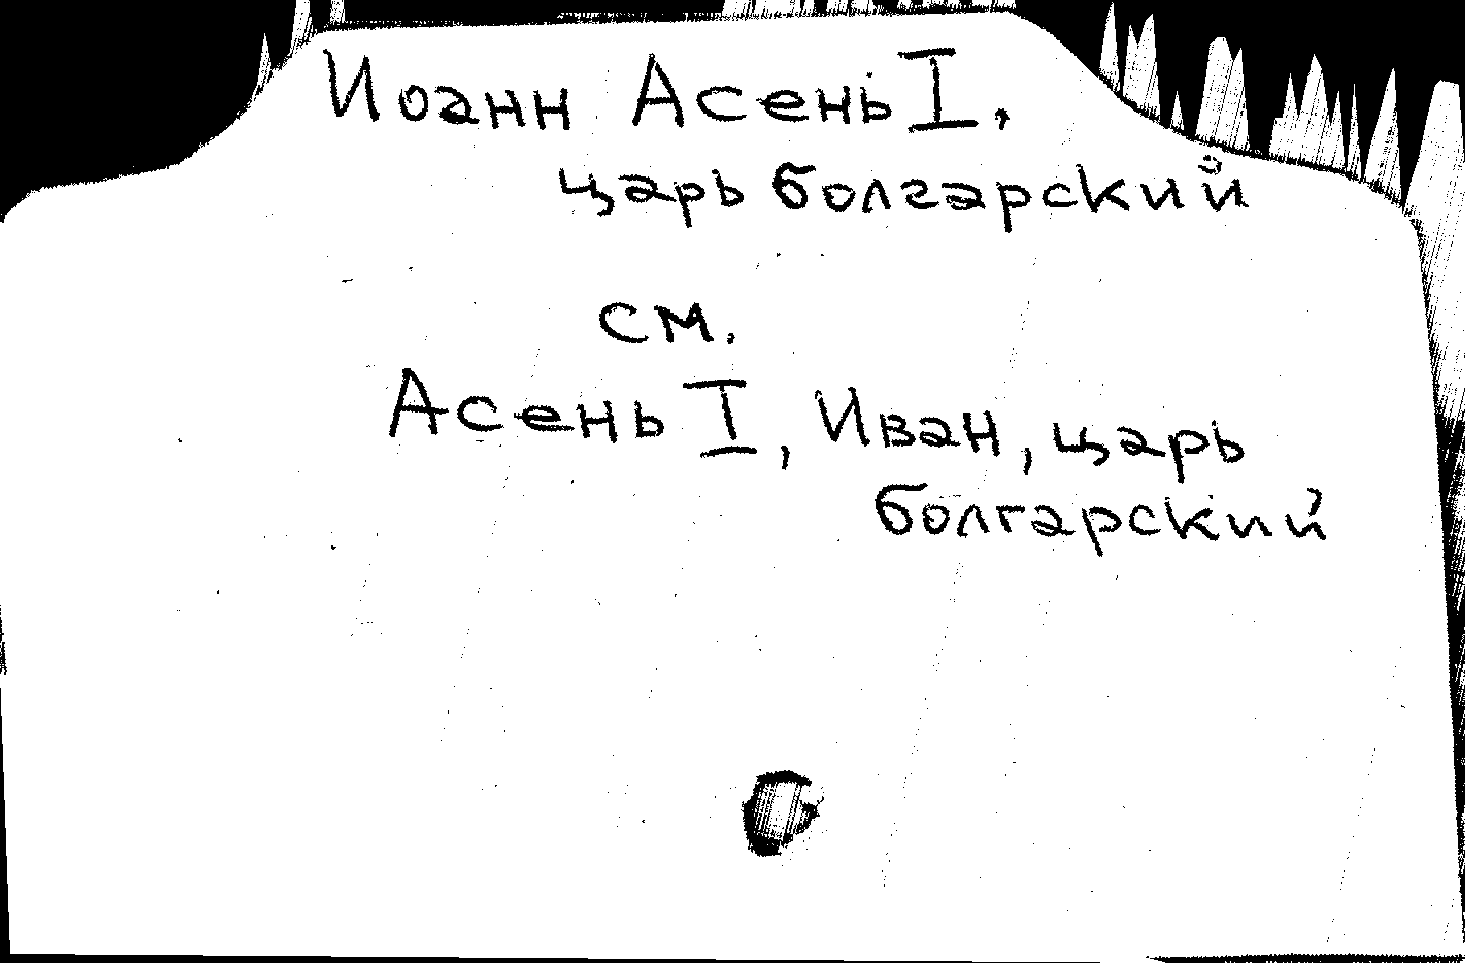 Иоанн Асень I,
царь болгарский
см.
Асень I, Иван, царь
болгарский